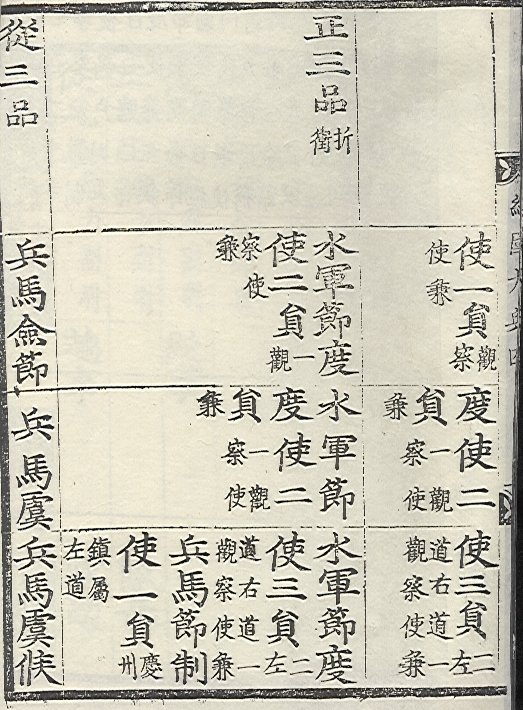 經國大典四
使一貟觀察
使兼
度使二
貟一觀察使
兼
使三貟二左
道右道一
觀察使兼
正三品折衝
水軍節度
使二貟一觀
察使兼
水軍節
度使二
貟一觀察使
兼
水軍節度
使三貟二左
道右道一
觀察使兼
兵馬節制
使一貟慶州
鎮屬
左道
從三品
兵馬僉節
兵馬虞
兵馬虞候